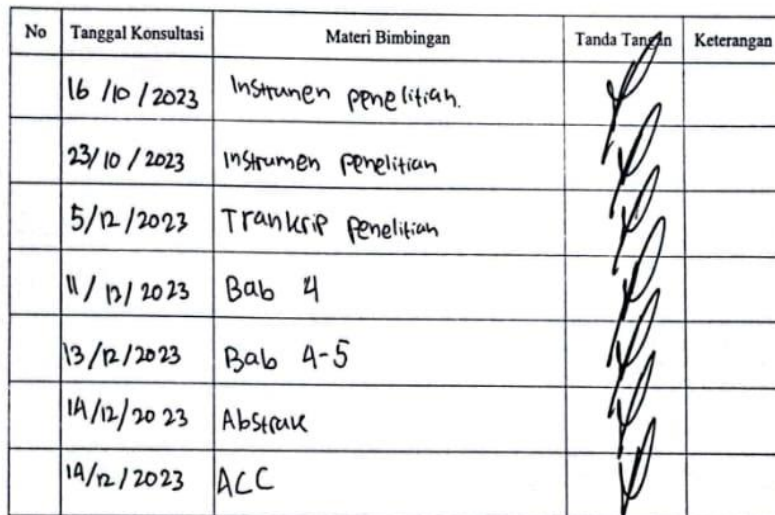 No Tanggal Konsultasi Materi Bimbingan Tanda Tangan Keterangan
16/10/2023 Instrumen penelitian.
23/10/2023 instrumen penelitian
5/12/2023 Trankrip penelitian
11/12/2023 Bab 4
13/12/2023 Bab 4-5
14/12/2023 Abstrak
14/12/2023 ACC